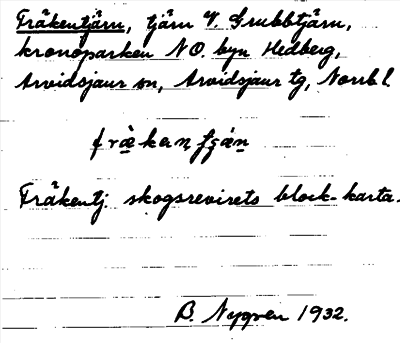 Fräkentjärn, tjärn V. Grubbtjärn,
kronoparken NO. byn Hedberg,
Arvidsjaur sn, Arvidsjaur tg, Norrb l.
fràkenʃján
Fräkentj. skogsrevirets block-karta.
B. Nygren 1932.